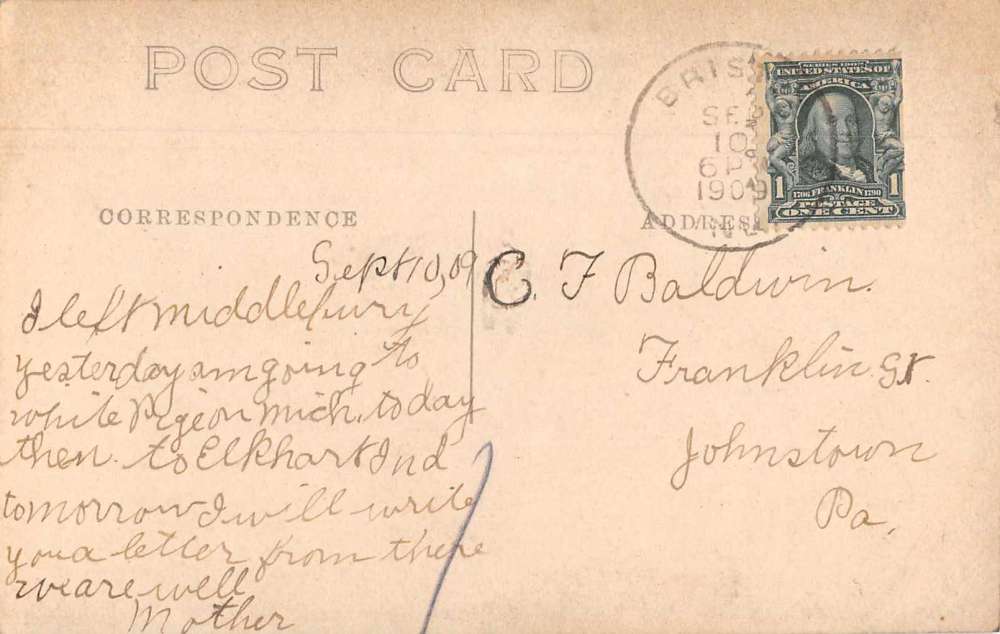 POST CARD
SEP
10
6 P
1909
SERIES 1902
UNITED STATES OF
AMERICA
1 1706 FRANKLIN 1790 1
POSTAGE
ONE CENT
CORRESPONDENCE
ADDRESS
Sept 10, 09
I left middlebury
yesterday am going to
white Pigeon Mich. today
then to Elkhart Ind
tomorrow I will write
you a letter from there
we are well
Mother
C. F Baldwin.
Franklin St.
Johnstown
Pa,